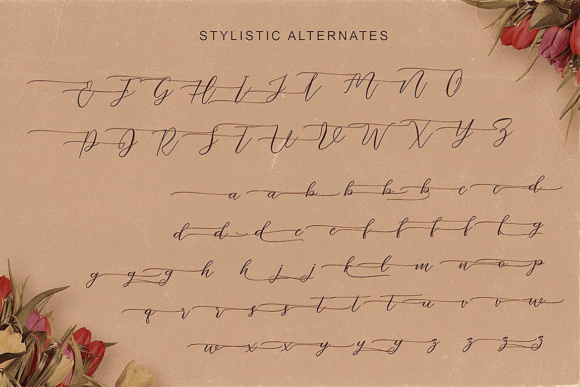 STYLISTIC ALTERNATES
E F G H I J L M N O
P Q R S T U V W X Y Z
a a b b b b c c d
d d d c e f f f f f g
g g g h h j j k l m n o p
q r r s s t t t u v v w
w x x y y y z z z z